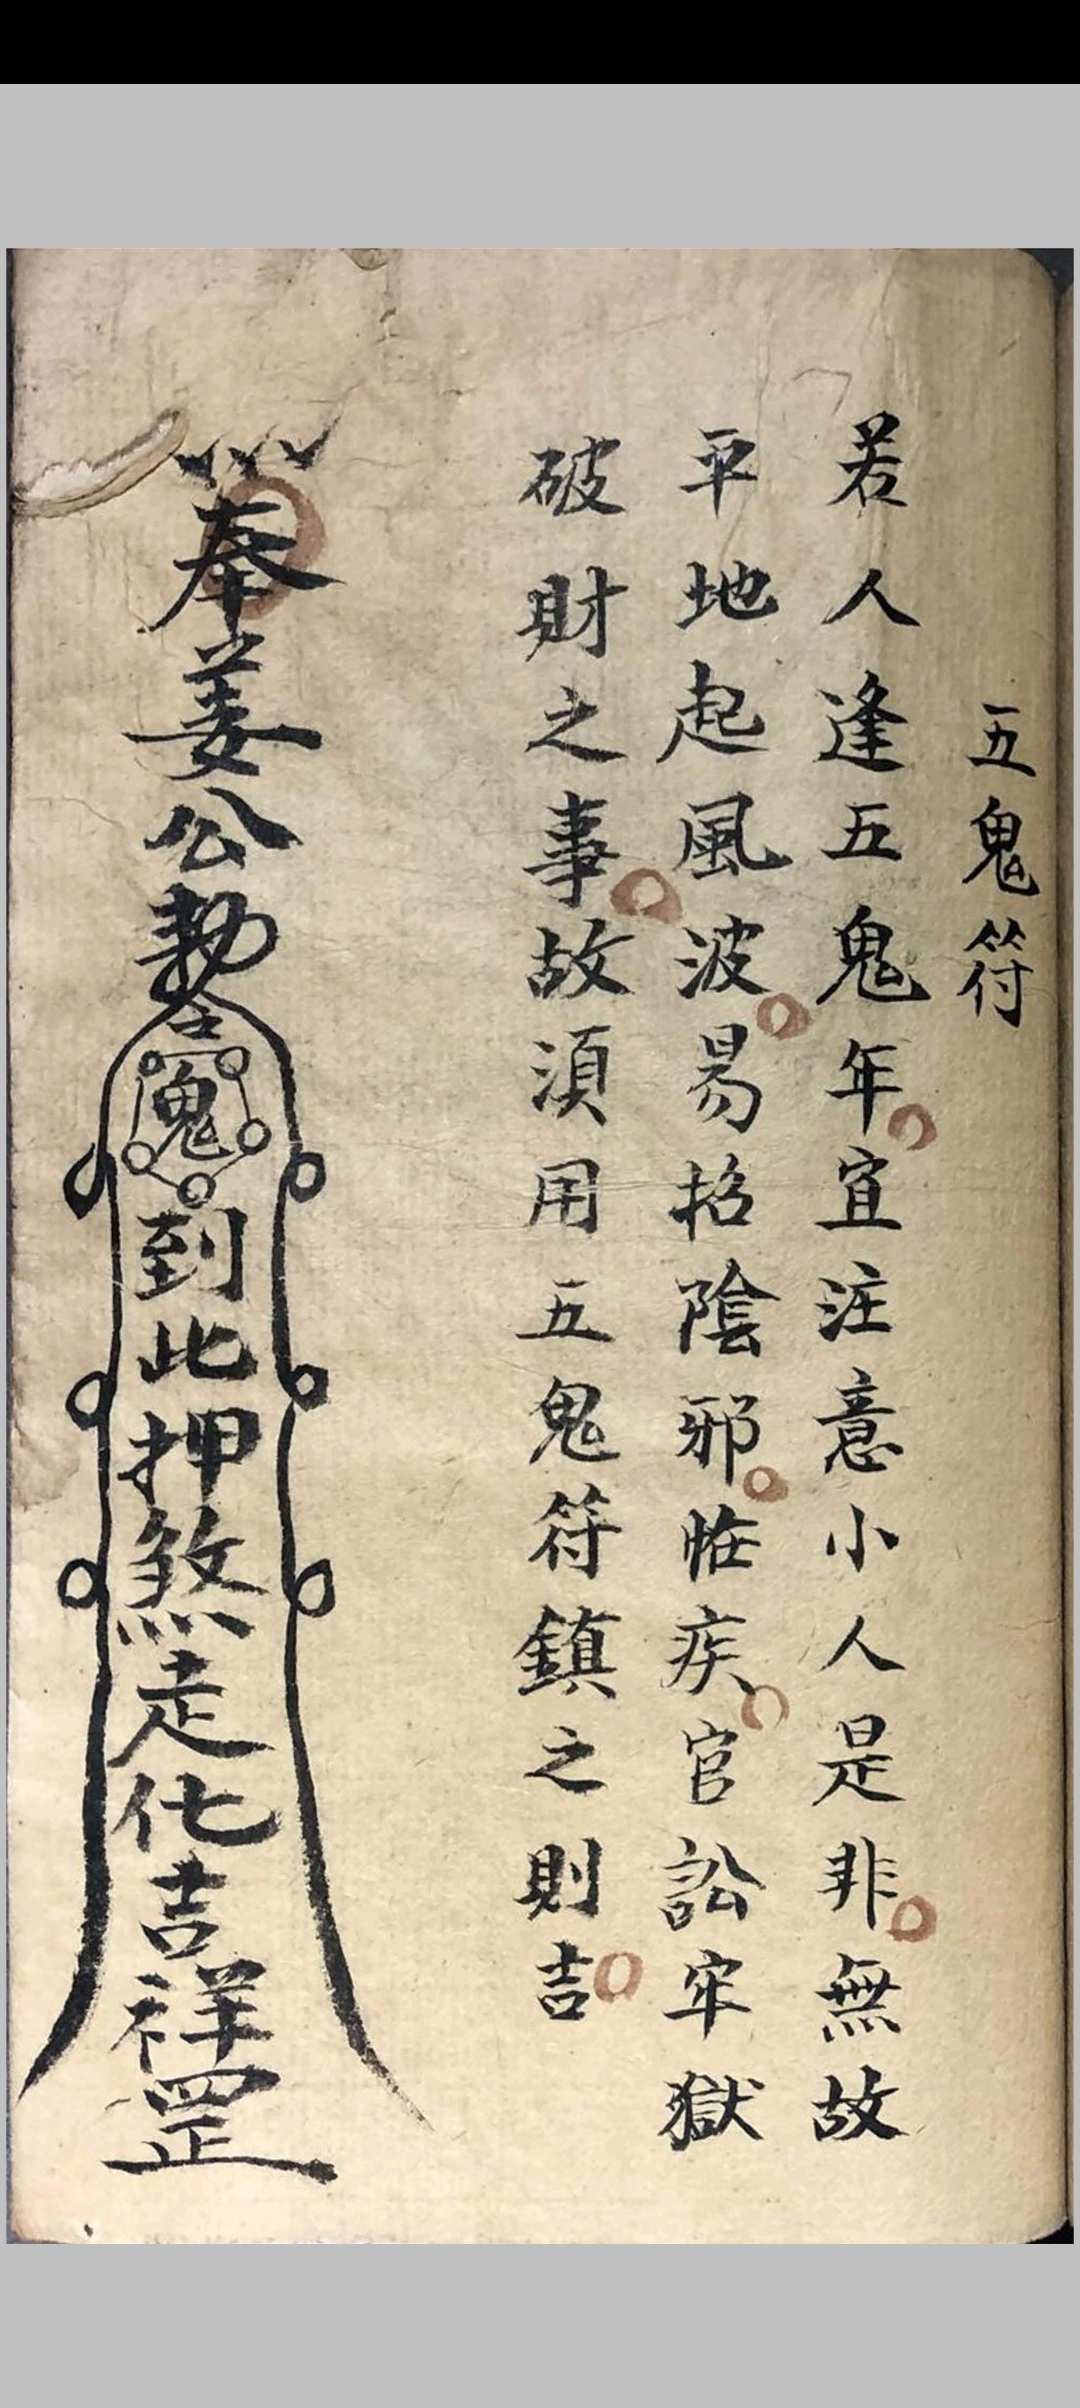 五鬼符
若人逢五鬼年宜注意小人是非無故
平地起風波易招陰邪怪疾官訟牢獄
破財之事故須用五鬼符鎮之則吉
奉姜公勅令
鬼到此押煞走化吉祥罡